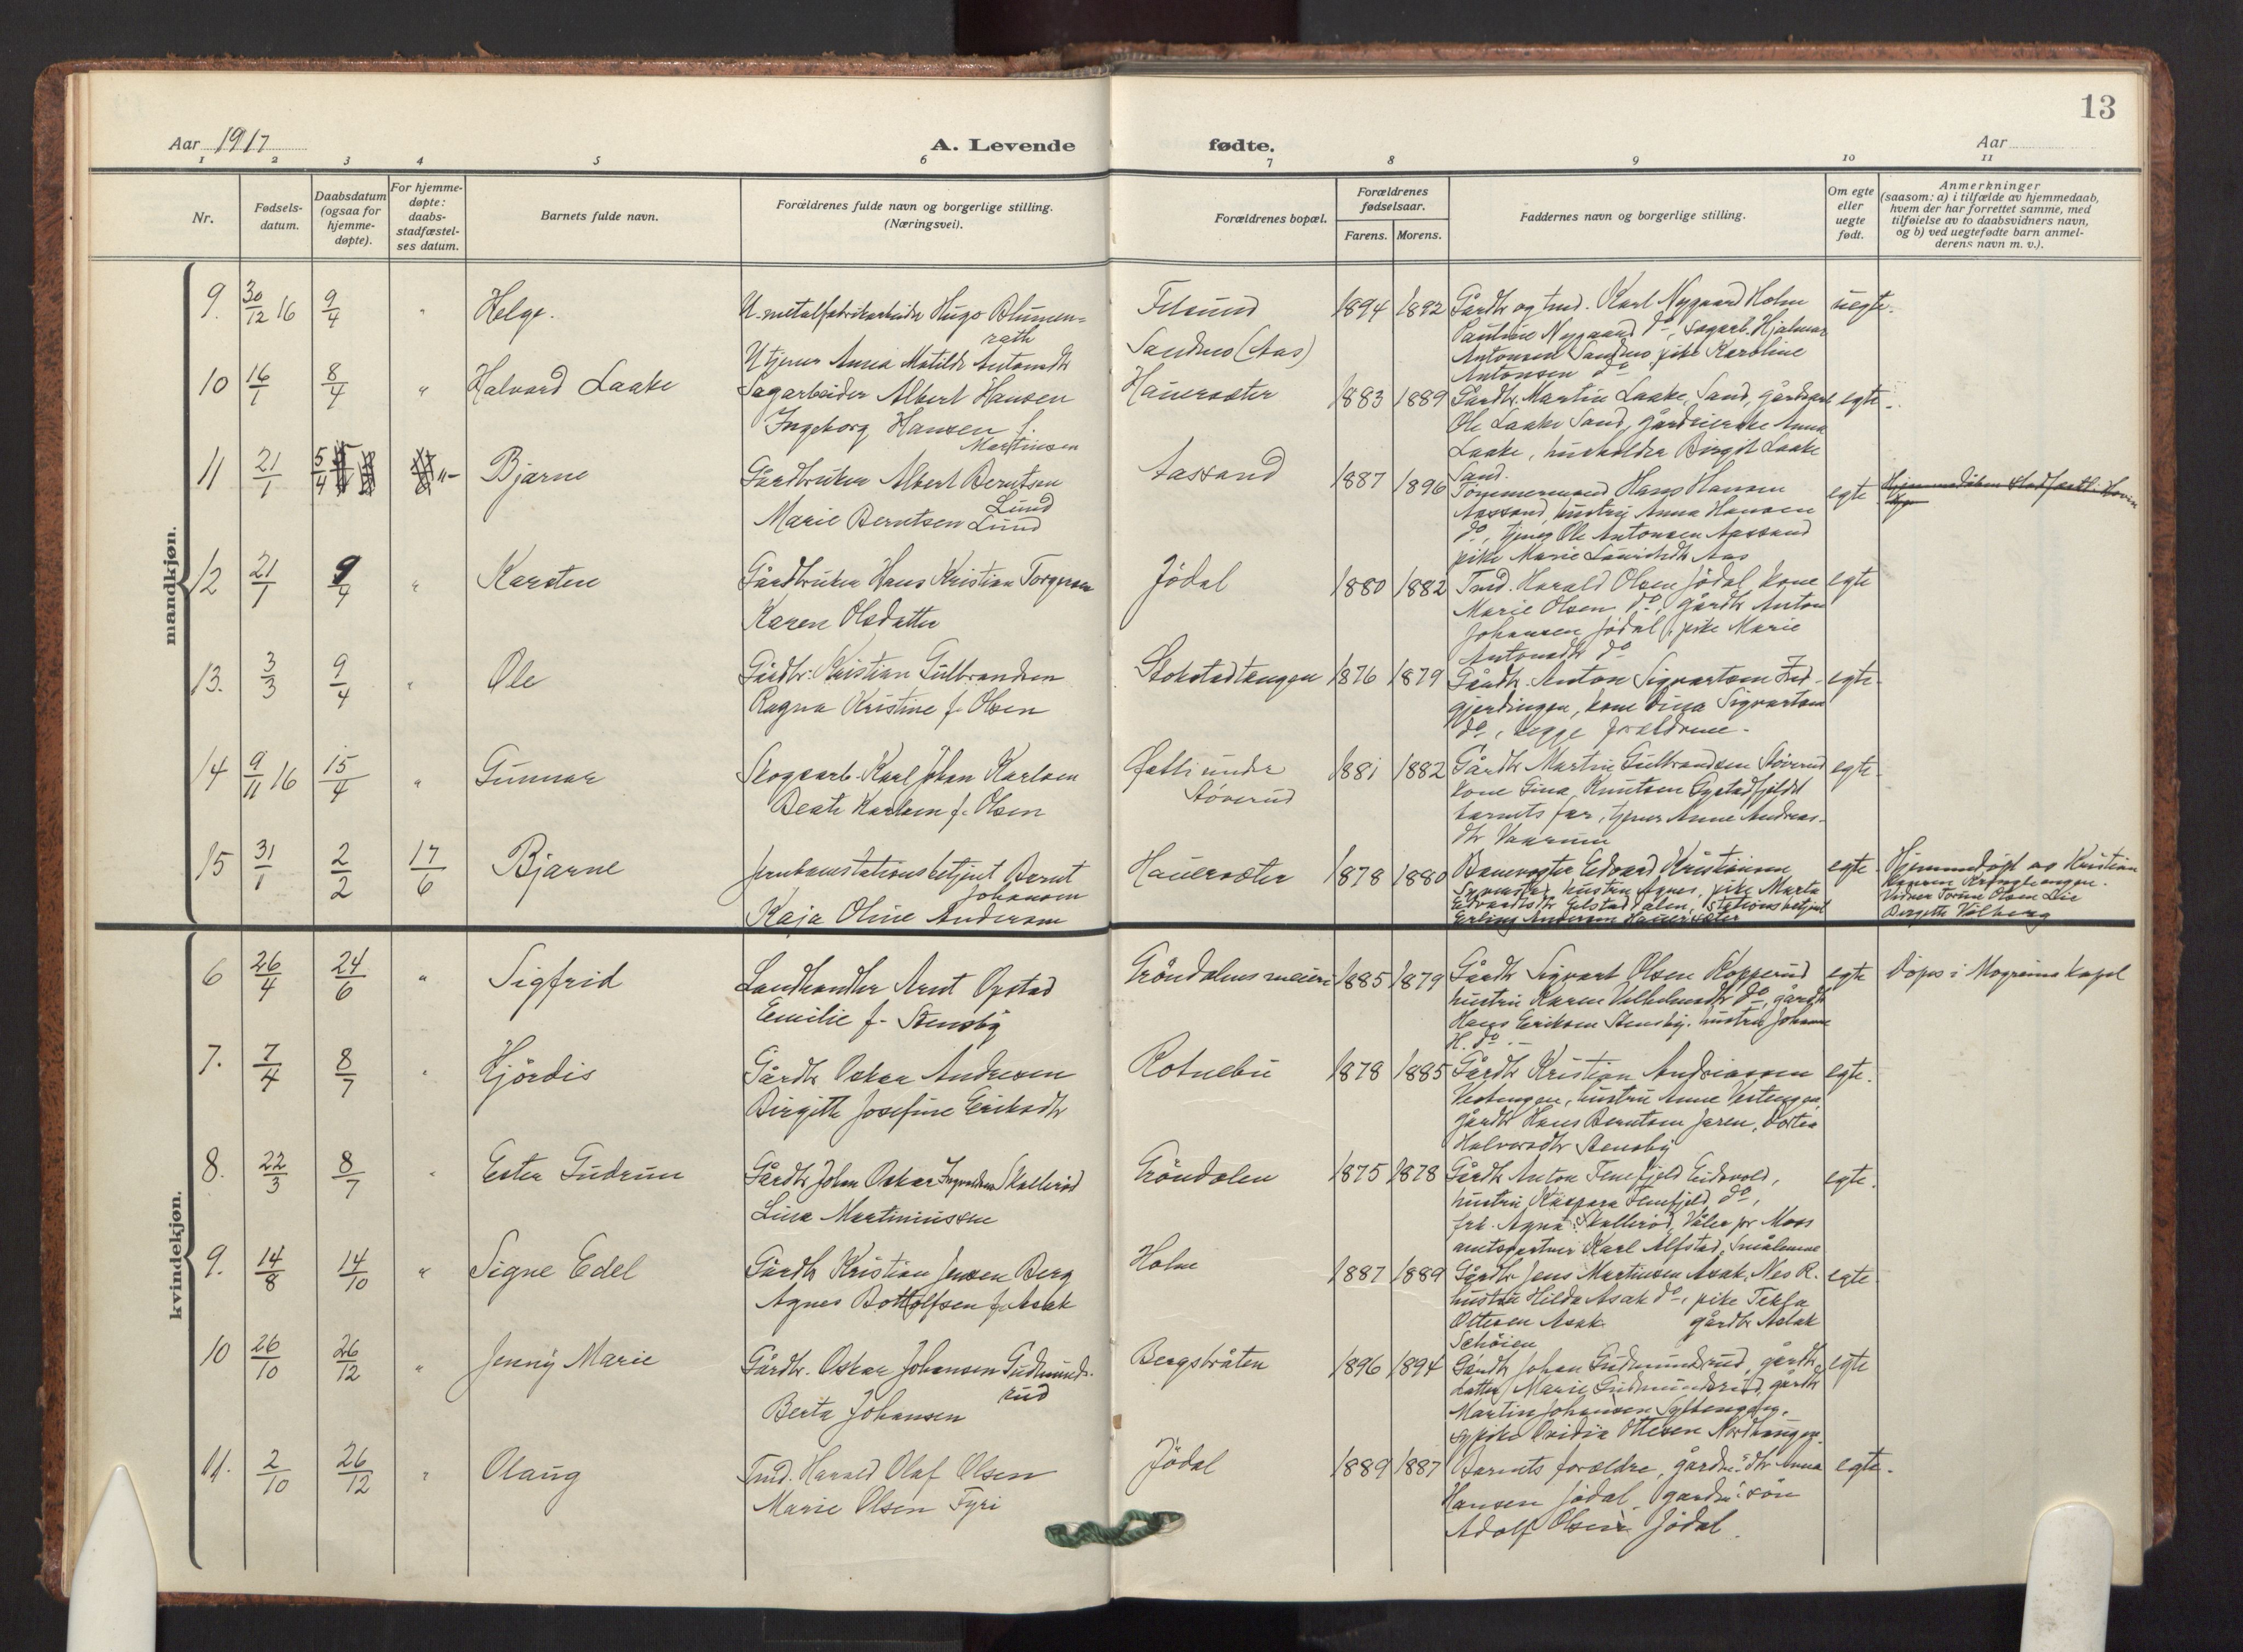 13
Aar 1917
A. Levende fødte.
Aar
1 2 3 4 5 6 7 8 9 10 11
Nr.
Fødsels-
datum.
Daabsdatum
(ogsaa for
hjemme-
døpte).
For hjemme-
døpte:
daabs-
stadfæstel-
ses datum.
Barnets fulde navn.
Forældrenes fulde navn og borgerlige stilling.
(Næringsvei).
Forældrenes bopæl.
Forældrenes
fødselsaar.
Farens. Morens.
Faddernes navn og borgerlige stilling.
Om egte
eller
uegte
født.
Anmerkninger
(saasom: a) i tilfælde av hjemmedaab,
hvem der har forrettet samme, med
tilføielse av to daabsvidners navn,
og b) ved uegtefødte barn anmel-
derens navn m. v.).
mandkjøn.
9. 30/12 16 9/4 " Helge. U. metalfabrikarbeider Hugo Blumen= 1894 1892 Gårdbr og tmd. Karl Nygaard Holm uegte.
rath
Pauline Nygaard do, sagarb. Hjalmar
U tjener Anna Matilde Antonsdtr Sandnes (Aas)
Antonsen Sandnes pike Karoline
Antonsen do
10 16/1 8/4 " Halvard Laake Sagarbeider Albert Hansen Hauersæter 1883 1889 Gårdbr. Martin Laake, Sand, egte.
Ingeborg Hansen f.
Martinsen
Ole Laake Sand, gårdeierske Anna
Laake, Birgit Laake
Sand.
11 21/1 5/4 "- Bjarne Gårdbruker Albert Berntsen Aassand 1887 1896 Tømmermand Hans Hansen egte
Lund
Marie Berntsen Lund
Aassand, hustru Anna Hansen
do, tjener Ole Antonsen Aassand
pike Marie Aas
12 21/1 9/4 " Karsten Gårdbruker Hans Kristian Torgersen Jödal 1880 1882 Tmd. Harald Olsen Jödal kone egte
Karen Olsdatter
Marie Olsen do, gårdbr Anton
Johansen Jödal, pike Marie
Antonsdtr do
13. 3/3 9/4 " Ole Gårdbr. Kristian Gulbrandsen Stokstadtangen 1876 1879 Gårdbr. Anton Sigvartsen Ind- egte
Ragna Kristine f. Olsen
gjerdingen, kone Dina Sigvartsen
do, begge forældrene.
14 9/11 16 15/4 " Gunnar Skogsarb. Karl Johan Karlsen under 1881 1882 Gårdbr Martin Gulbrandsen Støverud egte
Støverud
Beate Karlsen f. Olsen
kone Gina Knutsen
barnets far, tjener Anne Andreas-
dtr
15 31/1 2/2 17/6 Bjarne Jernbanestationsbetjent Bernt Hauersæter 1878 1880 Banevogter Edvard Kristiansen egte Hjemmedøpt av Kristian
Johansen
Kaja Oline Andersen
hustru Agnes, pike Marta
stationsbetjent
Erling Andersen Hauersæter
Vidner Torine Olsen Lie
Birgitte Vilberg
kvindekjøn.
6 26/4 24/6 " Sigfrid Landhandler Arnt Opstad Gröndalens meieri 1885 1879 Gårdbr Sigvart Olsen Kopperud egte Döpt i Mogreina kapel
Emilie f. Stensby
hustru Karen Vilhelmsdtr do, gårdbr
Hans Eriksen Stensby, hustru Johanne
H. do.
7. 7/4 8/7 " Hjördis Gårdbr Oskar Andresen Rotnebu 1878 1885 Gårdbr Kristian Andreassen egte.
Birgitte Josefine Eriksdtr
Vestengen, hustru Anne Vestengen,
gårdbr Hans Berntsen Jaren, Dortea
Halvorsdtr Stensby
8. 22/3 8/7 " Ester Gudrun Gårdbr Johan Oskar Ingvaldsen Skallerød Gröndalen 1875 1878 Gårdbr Anton Tenefjeld Eidsvold, egte.
Lina Martiniussen
hustru Kaspara Tenefjeld do,
frk. Agna Skallerød, Våler pr Moss
amtsgartner Karl Alfstad, Smålenene
9. 14/8 14/10 " Signe Edel Gårdbr Kristian Jensen Berg Holm 1887 1889 Gårdbr Jens Martinsen Asak, Nes R. egte
Agnes Bottolfsen f. Asak
hustru Hilda Asak do, pike Tekla
Ottesen Asak. gårdbr Aslak
Schöien
10 26/10 26/12 " Jenny Marie Gårdbr. Oskar Johansen Gudmunds- Bergsbråten 1896 1894 Gårdbr Johan Gudmundsrud, gårdbr egte
rud
Berta Johansen
datter Marie Gudmundsrud, gårdbr
Martin Johansen
sypike Ovidia Ottesen Nordhaugen.
11. 2/10 26/12 " Olaug Tmd. Harald Olaf Olsen Jödal 1889 1887 Barnets forældre, gårdbr.s dtr Anna egte.
Marie Olsen Fyri
Hansen Jödal, gårdbr.s sön
Adolf Olsen Jödal.